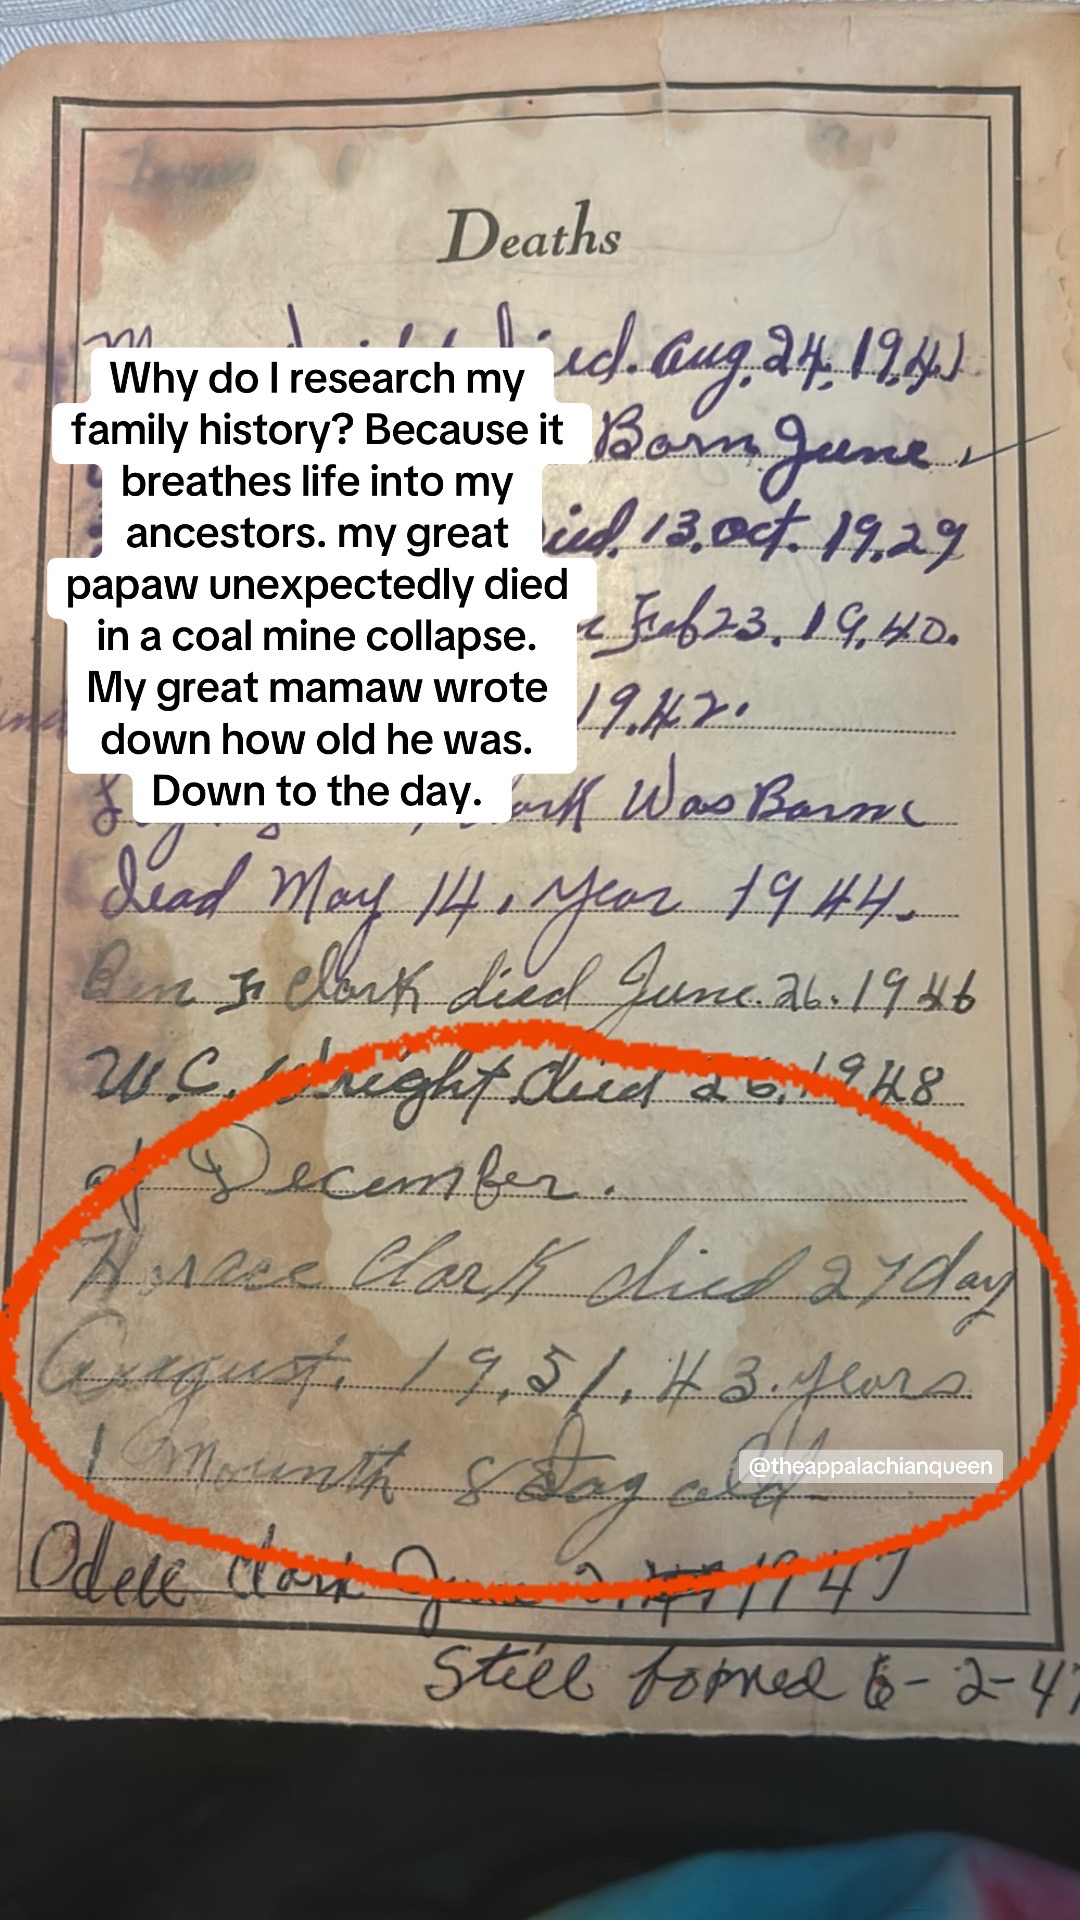 Deaths
died. Aug. 24, 1941
Born June
died. 13. Oct. 1929
Feb 23. 19,40.
19.42.
Why do I research my
family history? Because it
breathes life into my
ancestors. my great
papaw unexpectedly died
in a coal mine collapse.
My great mamaw wrote
down how old he was.
Down to the day.
Was Born
dead May 14, year 1944.
Ben Jr Clark died June. 26. 1946
W.C. Wright died 26, 1948
of December.
Horace Clark died 27 day
August. 19,51. 43. years
1 Mounth 8 day old
@theappalachianqueen
Odell Clark June 2, 1947
Still borned 6-2-47